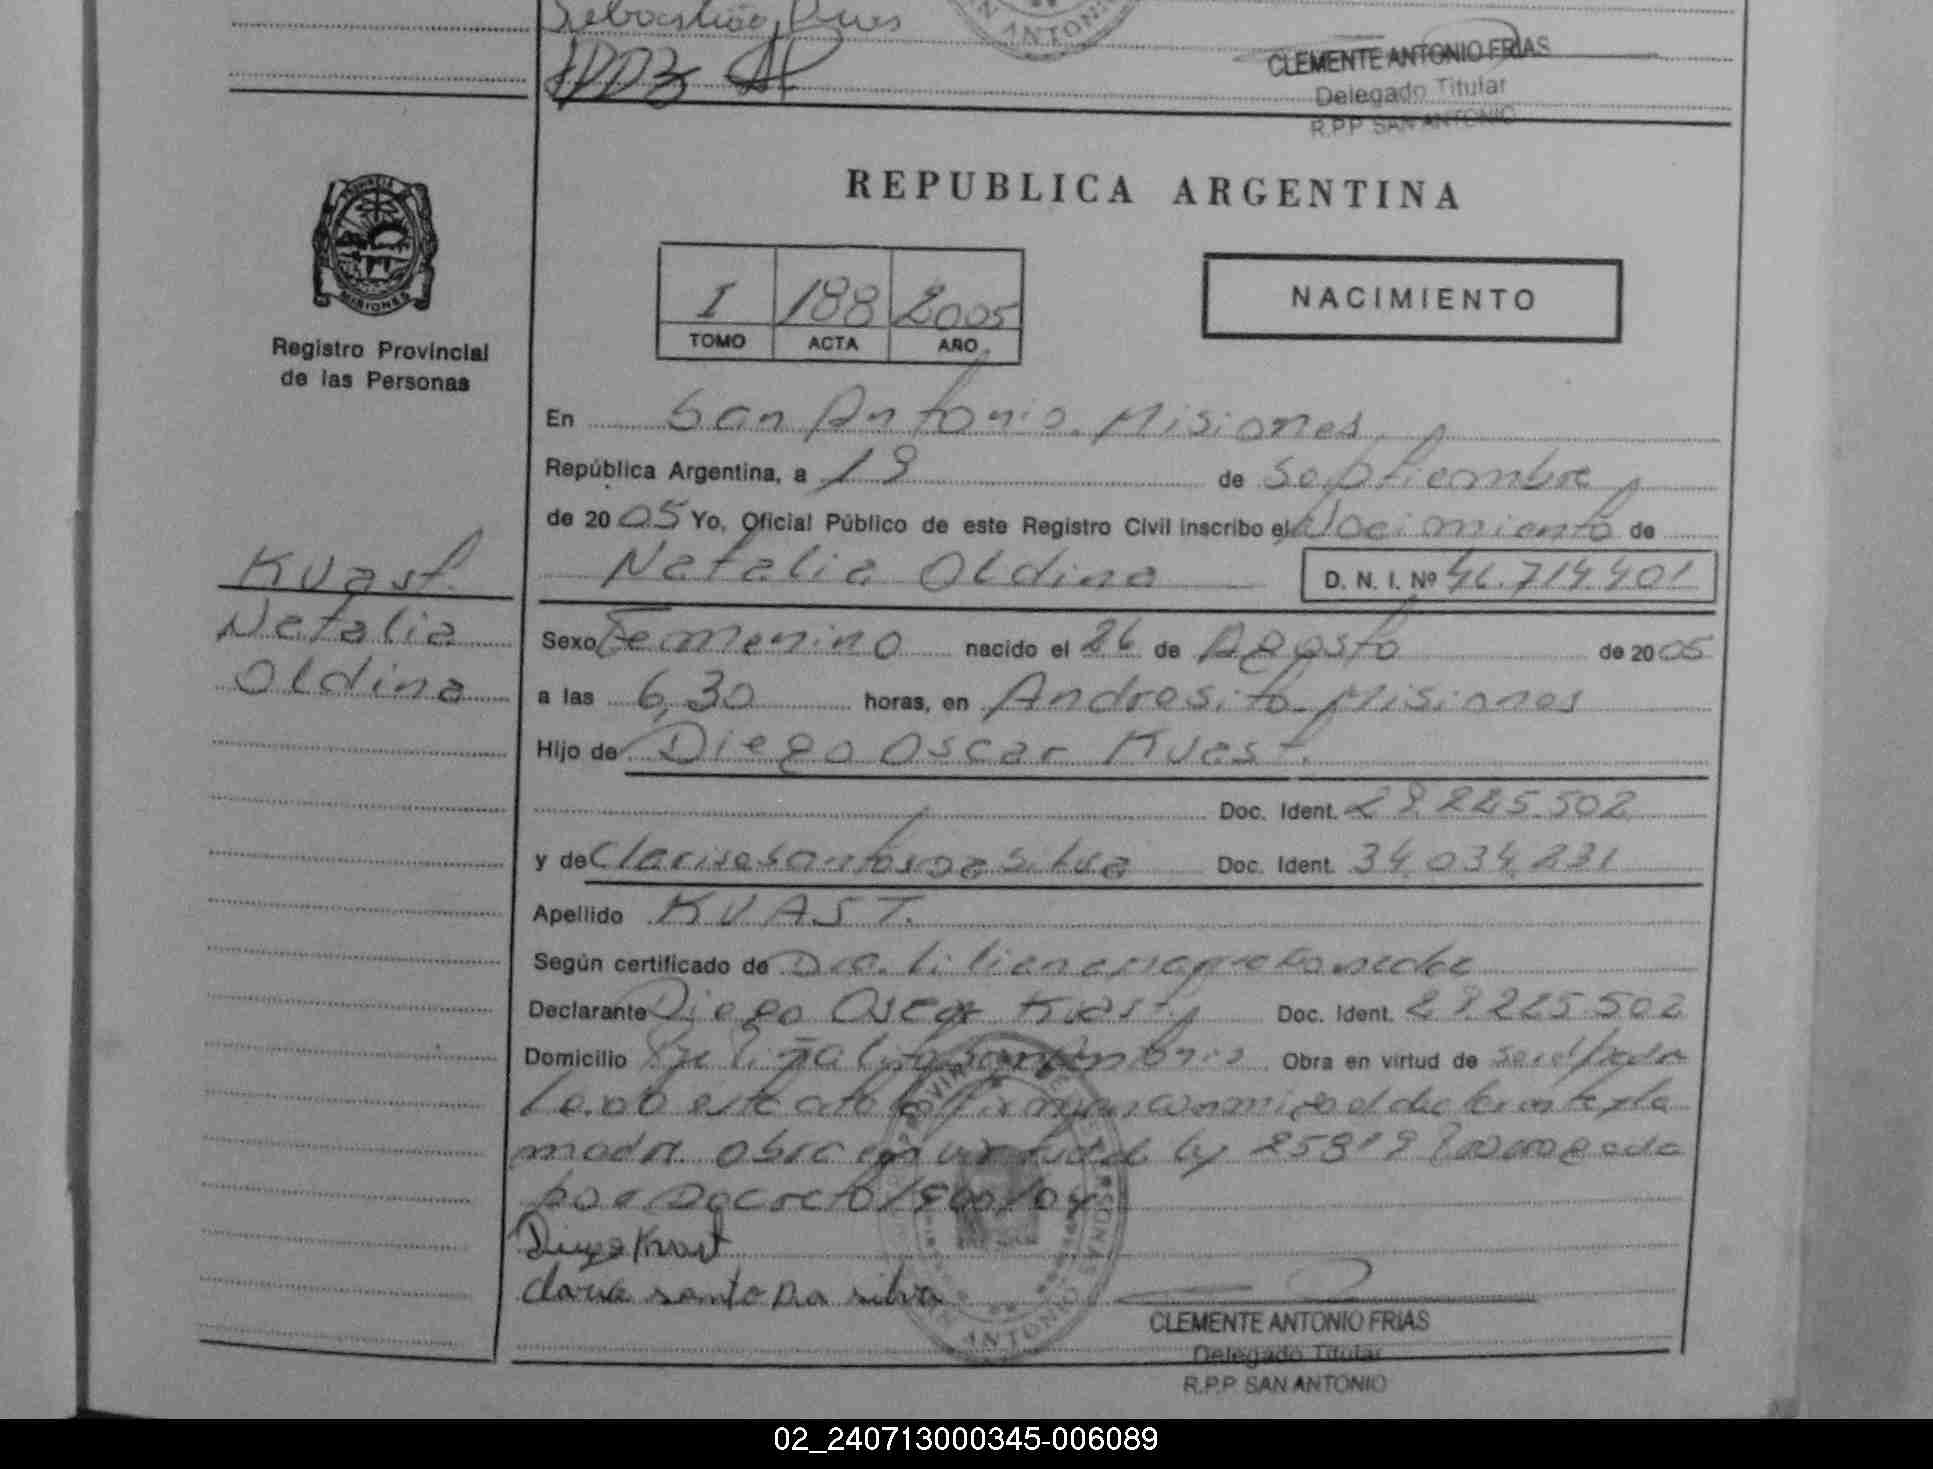 Sebastião
CLEMENTE ANTONIO FRIAS
Delegado Titular
R.P.P SAN ANTONIO
REPUBLICA ARGENTINA
PROVINCIA
MISIONES
Registro Provincial
de las Personas
I 188 2005
TOMO ACTA AÑO
NACIMIENTO
En San Antonio. Misiones
República Argentina, a 19 de Septiembre
de 2005 Yo, Oficial Público de este Registro Civil inscribo el Nacimiento de
Natalia Oldina D. N. I. Nº 714.401
Kuast.
Natalia
Oldina
Sexo Femenino nacido el 26 de Agosto de 2005
a las 6,30 horas, en Andresito. Misiones
Hijo de Diego Oscar Kuast.
Doc. Ident. 225.502
y de Clarise Santos Da Silva Doc. Ident. 34.034.231
Apellido KUAST.
Según certificado de Dra. Liliana
Declarante Diego Oscar Kuast Doc. Ident. 225.502
Domicilio San Antonio Obra en virtud de
este acto la firman conmigo el declarante y la
madre obra en virtud de ley 25819
por Decreto
Diego Kuast
santo Da silva
SAN ANTONIO
CLEMENTE ANTONIO FRIAS
Delegado Titular
R.P.P SAN ANTONIO
02_240713000345-006089